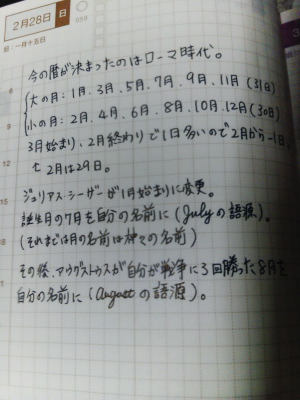 2月28日 日
旧：一月十五日
今の暦が決まったのはローマ時代。
大の月：1月、3月、5月、7月、9月、11月（31日）
小の月：2月、4月、6月、8月、10月、12月（30日）
3月始まり、2月終わりで1日多いので2月から−1日。
↑ 2月は29日。
ジュリアス・シーザーが1月始まりに変更。
誕生月の7月を自分の名前に（Julyの語源）。
（それまでは月の名前は神々の名前）
その後、アウグストゥスが自分が戦争に3回勝った8月を
自分の名前に（Augustの語源）。